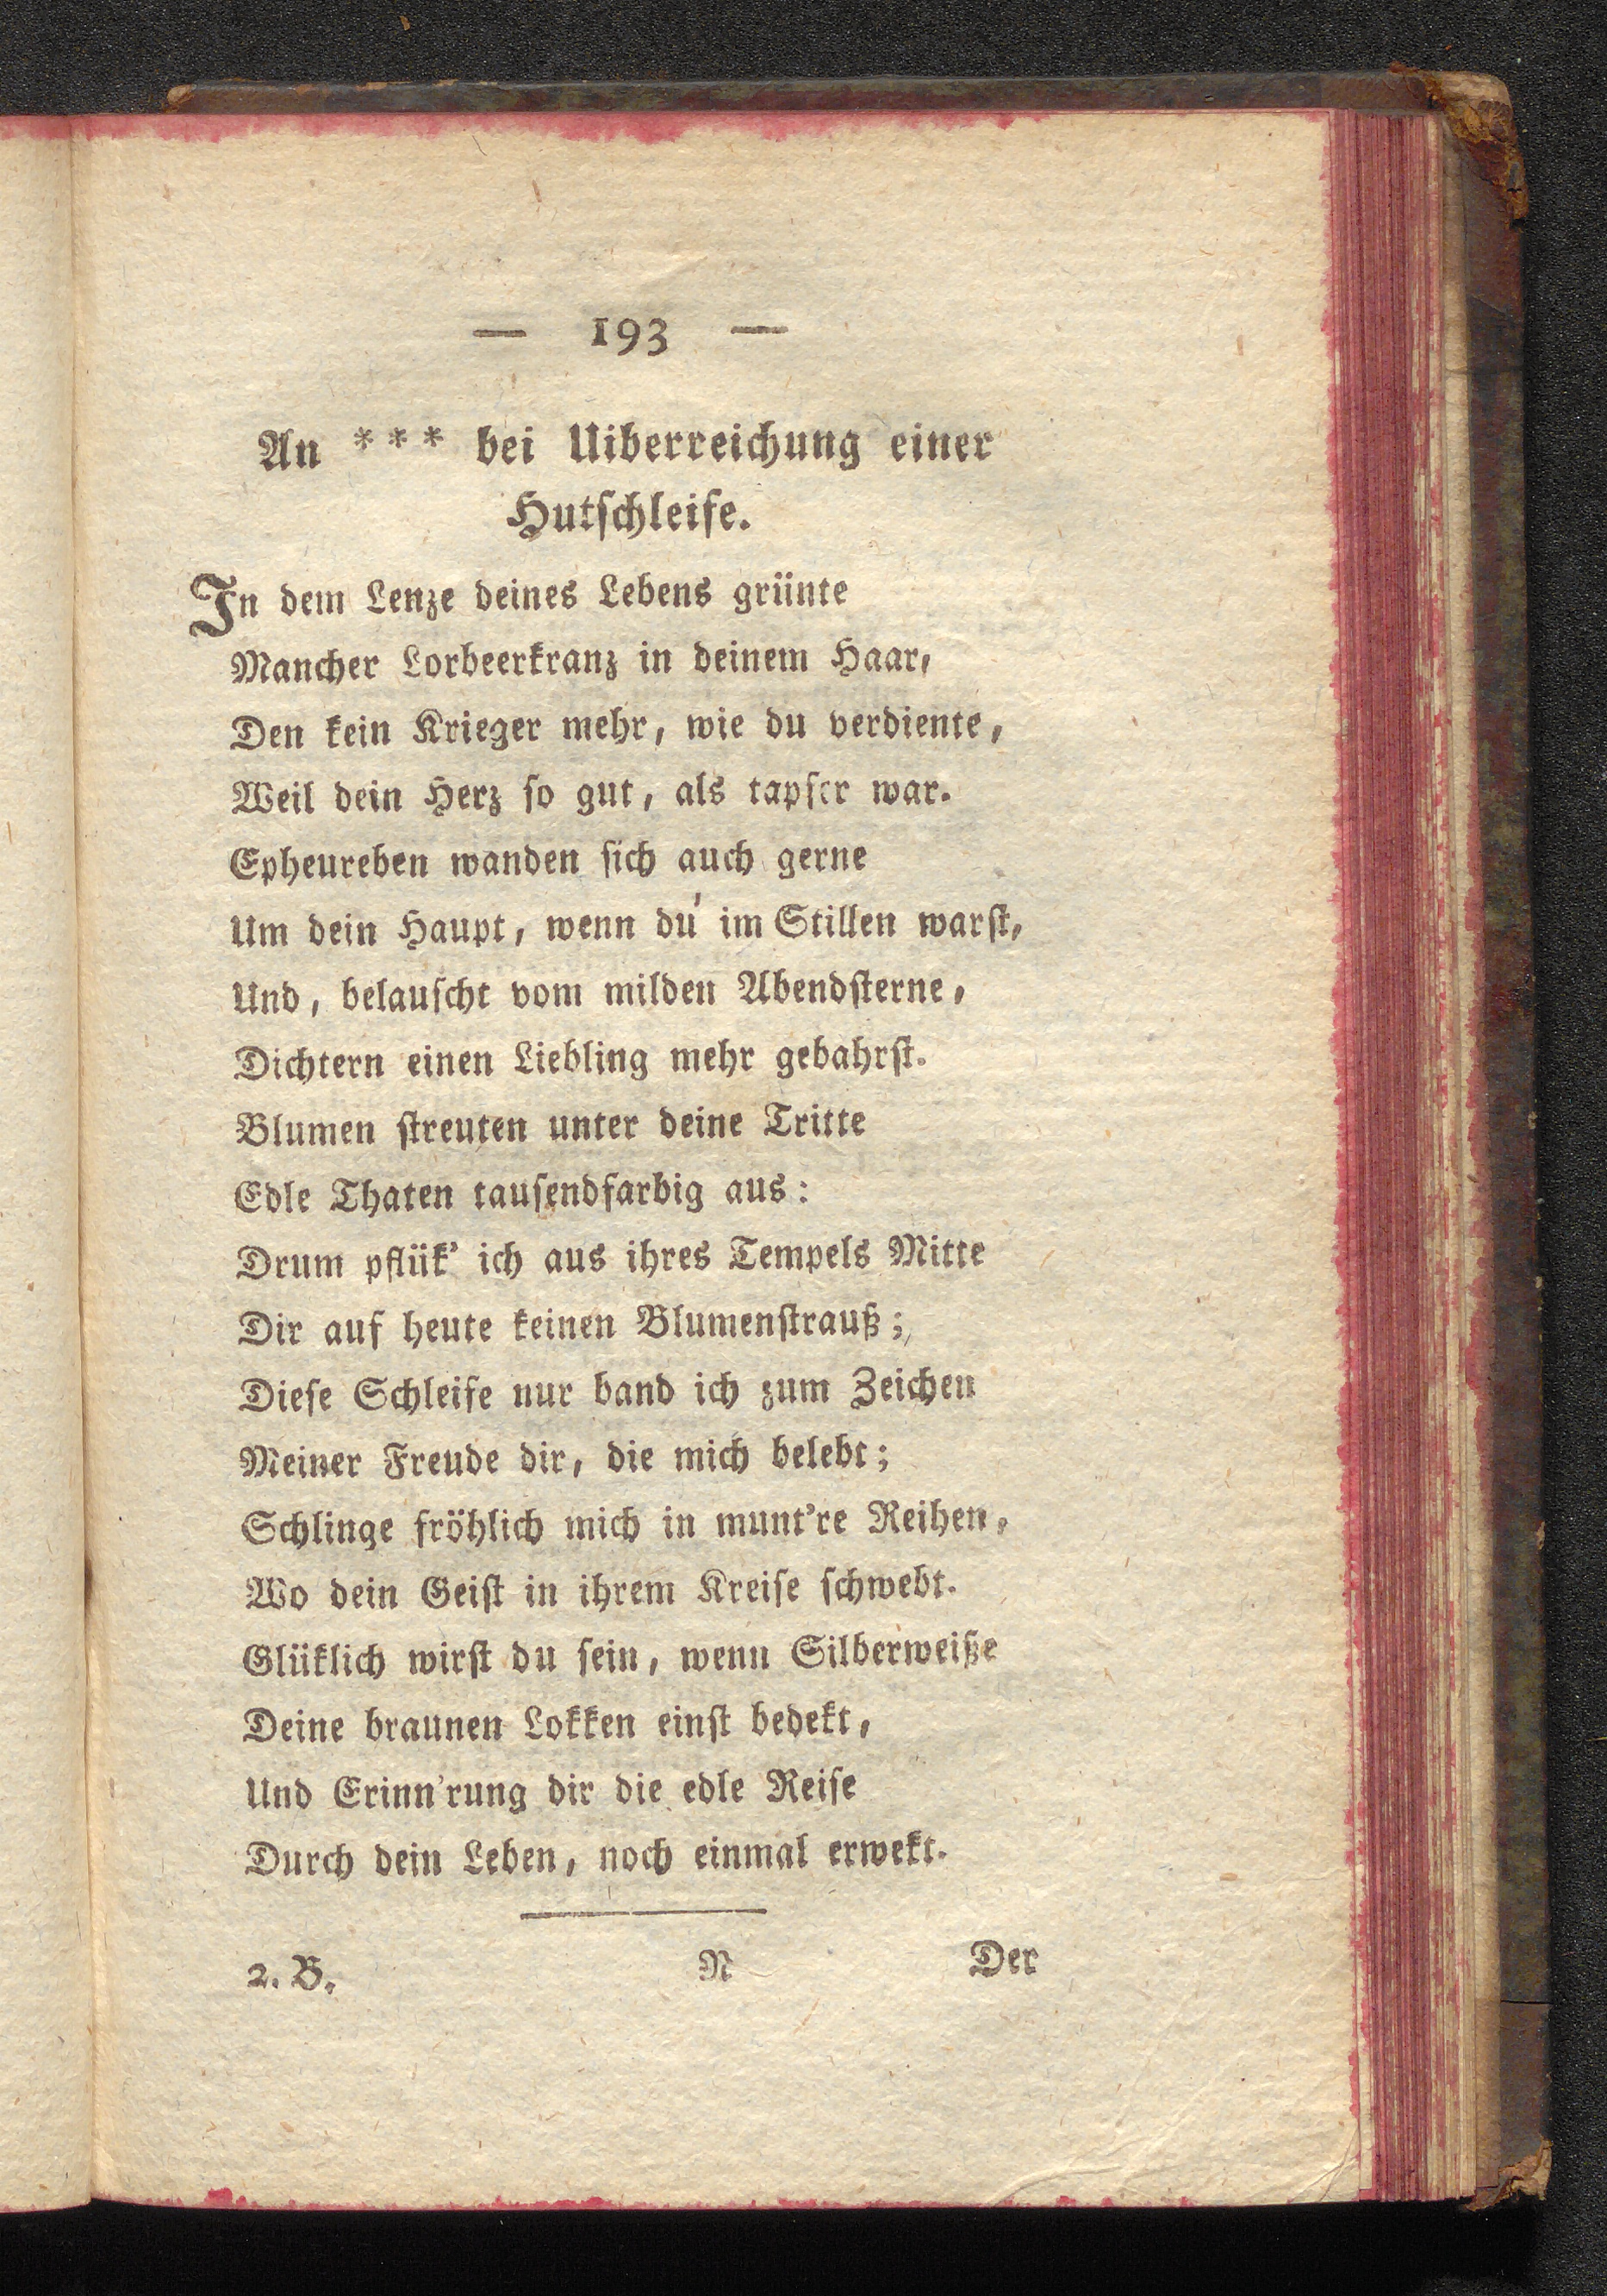 — 193 —
An *** bei Uiberreichung einer
Hutschleife.
In dem Lenze deines Lebens grünte
Mancher Lorbeerkranz in deinem Haar,
Den kein Krieger mehr, wie du verdiente,
Weil dein Herz so gut, als tapfer war.
Epheureben wanden sich auch gerne
Um dein Haupt, wenn du im Stillen warst,
Und, belauscht vom milden Abendsterne,
Dichtern einen Liebling mehr gebahrst.
Blumen streuten unter deine Tritte
Edle Thaten tausendfarbig aus:
Drum pflük' ich aus ihres Tempels Mitte
Dir auf heute keinen Blumenstrauß;
Diese Schleife nur band ich zum Zeichen
Meiner Freude dir, die mich belebt;
Schlinge fröhlich mich in munt're Reihen,
Wo dein Geist in ihrem Kreise schwebt.
Glüklich wirst du sein, wenn Silberweiße
Deine braunen Lokken einst bedekt,
Und Erinn'rung dir die edle Reise
Durch dein Leben, noch einmal erwekt.
2. B. N Der